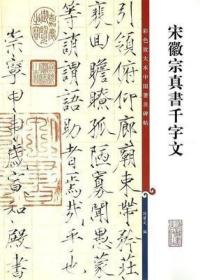 宋徽宗真書千字文
彩色放大本中國著名碑帖
引領俯仰廊廟束帶矜莊
徘徊瞻眺孤陋寡聞愚蒙
等誚謂語助者焉哉乎也
崇寧甲申歲宣和殿書